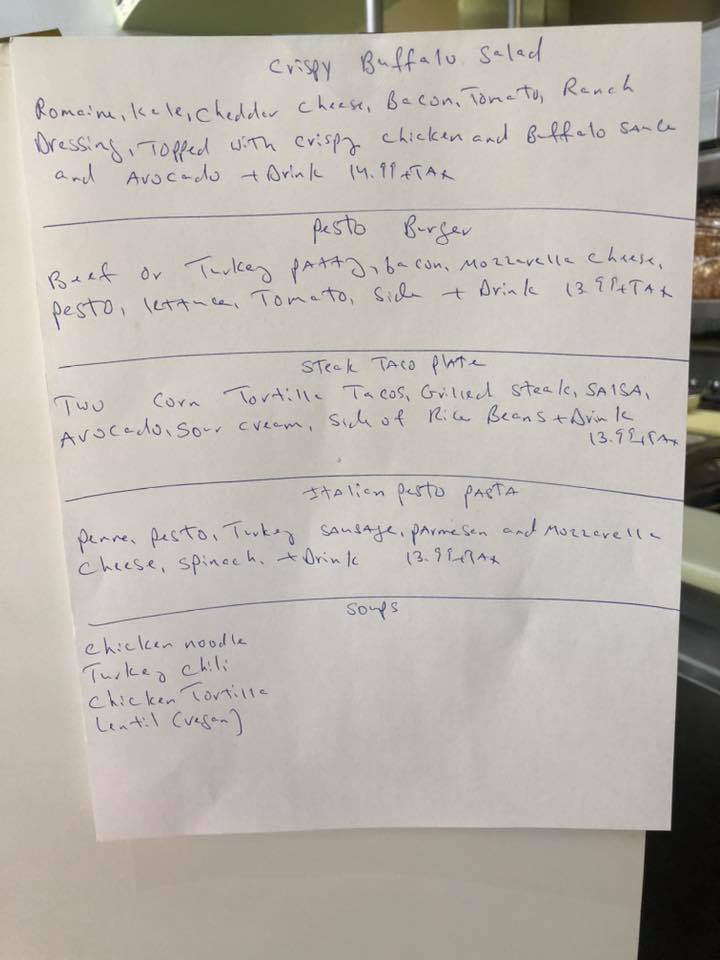 Crispy Buffalo Salad
Romaine, Kale, Cheddar Cheese, Bacon, Tomato, Ranch
Dressing, Topped with crispy chicken and Buffalo sauce
and Avocado + Drink 14.99+TAX
Pesto Burger
Beef or Turkey patty, bacon, Mozzarella cheese,
pesto, lettuce, Tomato, Side + Drink 13.99+TAX
Steak TACO plate
Two Corn Tortilla Tacos, Grilled steak, SALSA,
Avocado, Sour cream, Side of Rice Beans + Drink
13.99+TAX
Italian pesto pasta
penne, pesto, Turkey sausage, parmesan and Mozzarella
Cheese, spinach, + Drink 13.99+TAX
Soups
Chicken noodle
Turkey chili
Chicken Tortilla
Lentil (vegan)